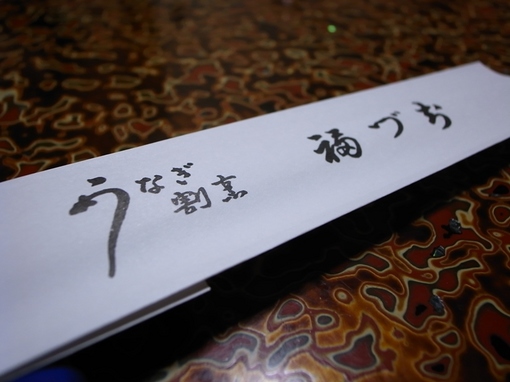 うなぎ
割烹
福づち